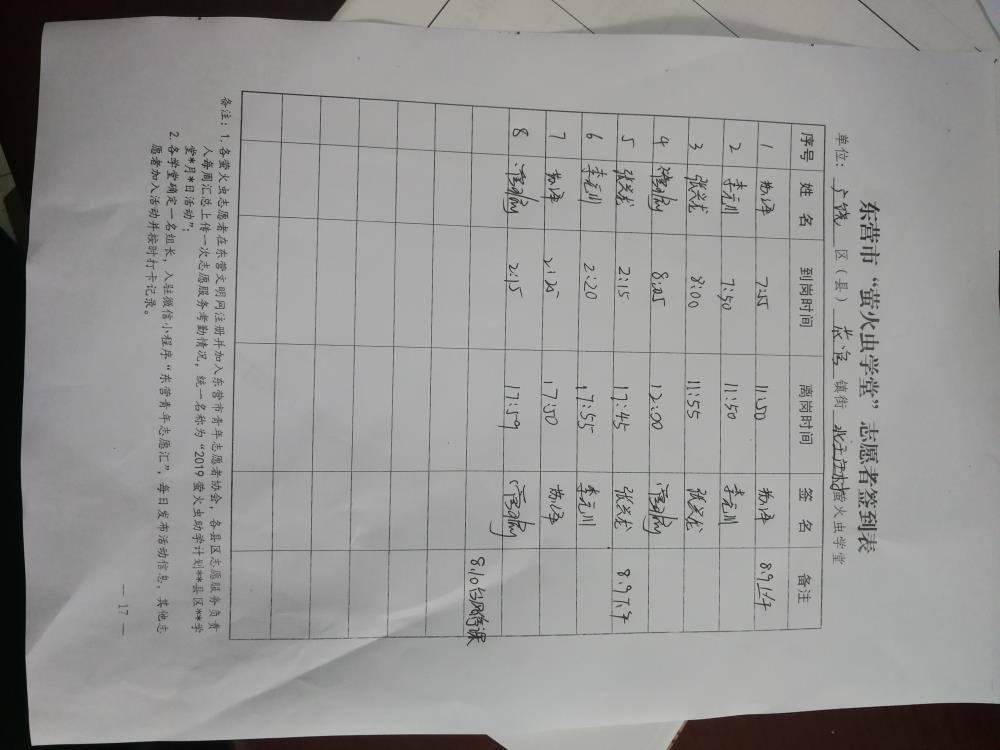 东营市“萤火虫学堂”志愿者签到表
单位：广饶 区（县） 镇街 萤火虫学堂
序号 姓名 到岗时间 离岗时间 签名 备注
1 7:55 11:50 8.9上午
2 李元川 7:50 11:50 李元川
3 张兴龙 8:00 11:55 张兴龙
4 8:05 12:00
5 张兴龙 2:15 17:45 张兴龙 8.9下午
6 李元川 2:20 17:55 李元川
7 2:25 17:50
8 2:15 17:59
8.10台风停课
备注：1. 各萤火虫志愿者在东营文明网注册并加入东营市青年志愿者协会，各县区志愿服务负责
人每周汇总上传一次志愿服务考勤情况，统一名称为“2019萤火虫助学计划**县区**学
堂*月*日活动”；
2. 各学堂确定一名组长，入驻微信小程序“东营青年志愿汇”，每日发布活动信息，其他志
愿者加入活动并按时打卡记录。
— 17 —